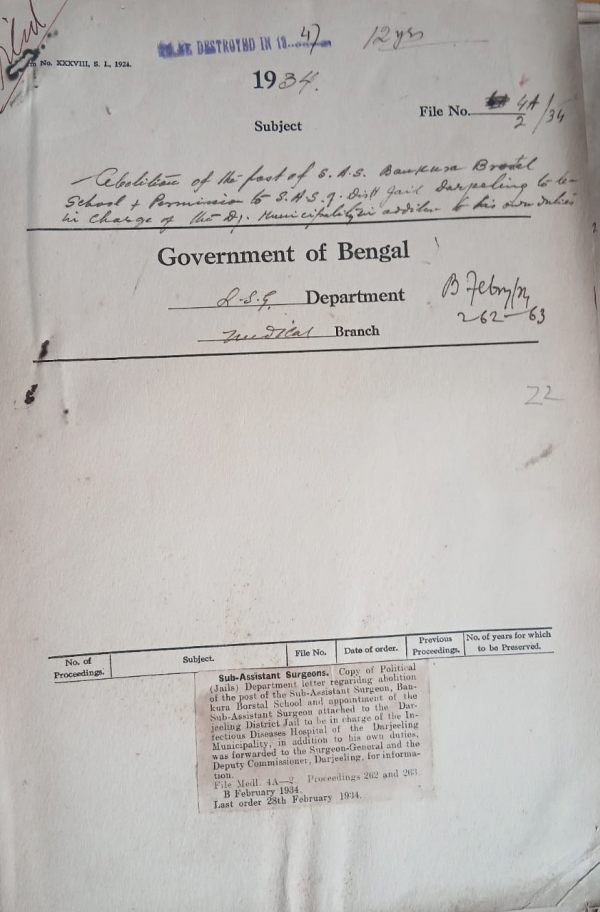 TO BE DESTROYED IN 19 47
12 yrs
No. XXXVIII, S. I., 1924.
1934.
File No. 4A/2/34
Subject
Abolition of the post of S.A.S. Bankura Brostel
School & Permission to S.A.S. of Distt Jail Darjeeling to be
in charge of the Dj. Municipality in addition to his own duties
Government of Bengal
L.S.G. Department
B Febry/34
262-63
Medical Branch
22
No. of Proceedings. Subject. File No. Date of order. Previous Proceedings. No. of years for which to be Preserved.
Sub-Assistant Surgeons. Copy of Political
(Jails) Department letter regaridng abolition
of the post of the Sub-Assistant Surgeon, Ban-
kura Borstal School and appointment of the
Sub-Assistant Surgeon attached to the Dar-
jeeling District Jail to be in charge of the In-
fectious Diseases Hospital of the Darjeeling
Municipality, in addition to his own duties,
was forwarded to the Surgeon-General and the
Deputy Commissioner, Darjeeling, for informa-
tion.
File Medl. 4A—2. Proceedings 262 and 263
B February 1934.
Last order 28th February 1934.